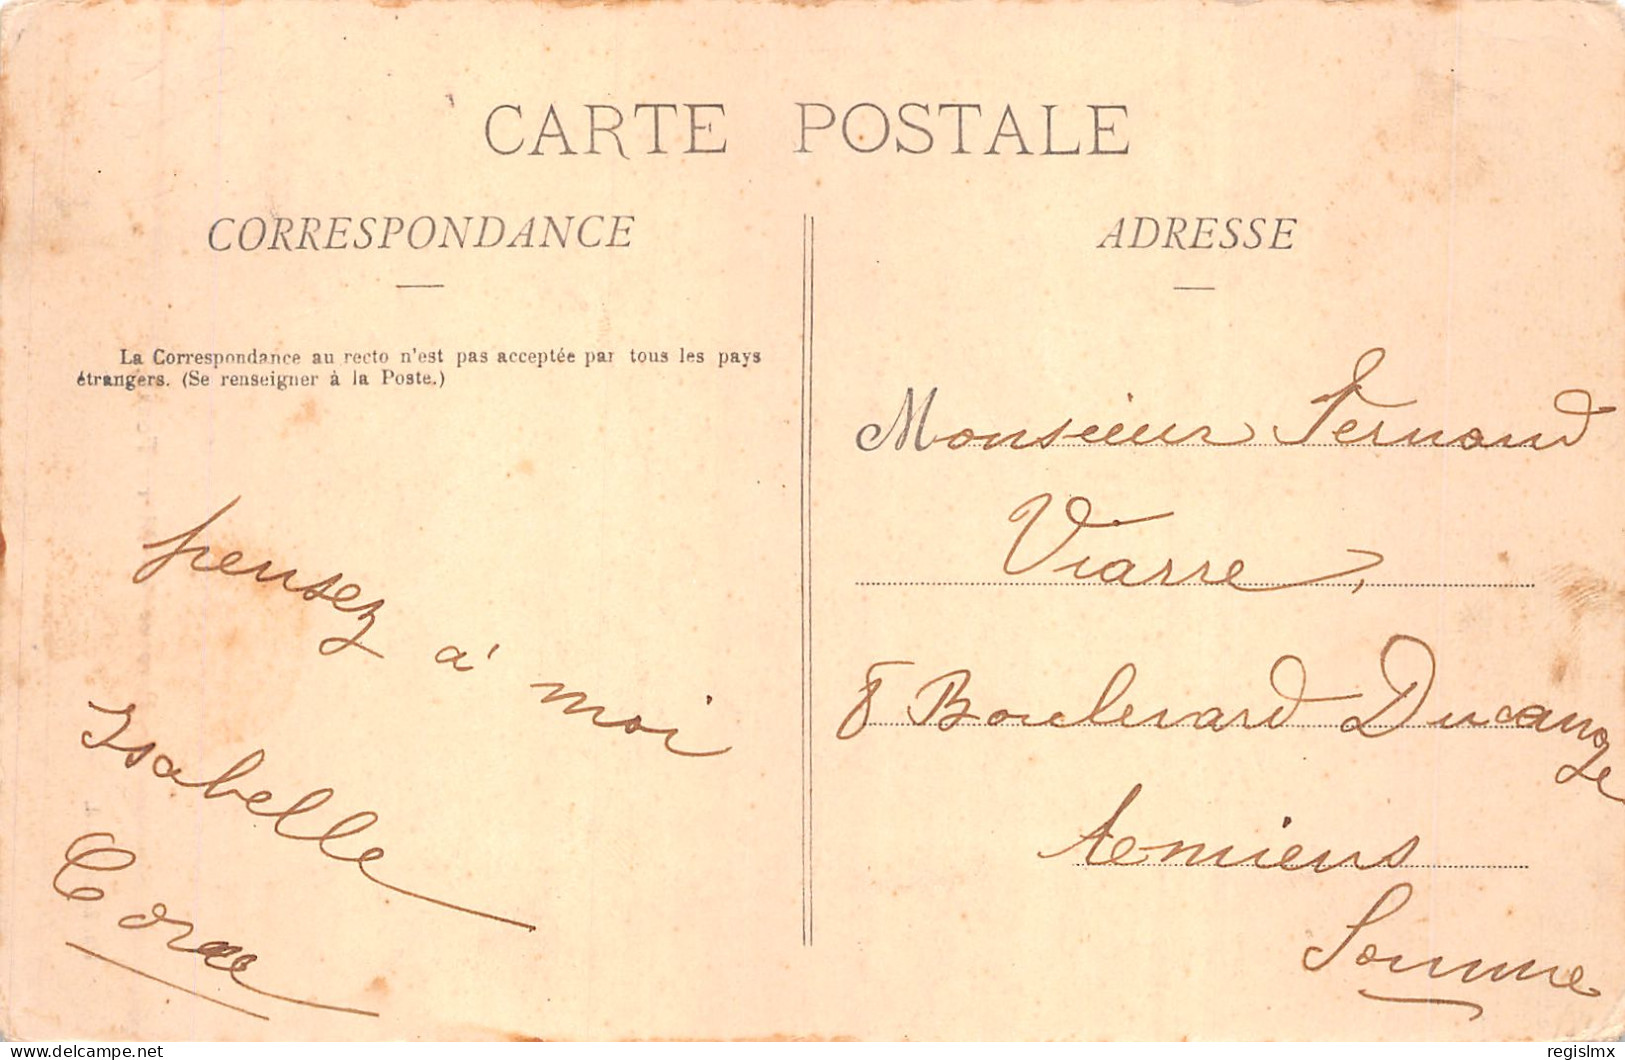 CARTE POSTALE
CORRESPONDANCE
La Correspondance au recto n'est pas acceptée par tous les pays
étrangers. (Se renseigner à la Poste.)
pensez à moi
Isabelle
ADRESSE
Monsieur Fernand
Viarre,
8 Boulevard Ducange
Amiens
Somme
www.delcampe.net
regislmx